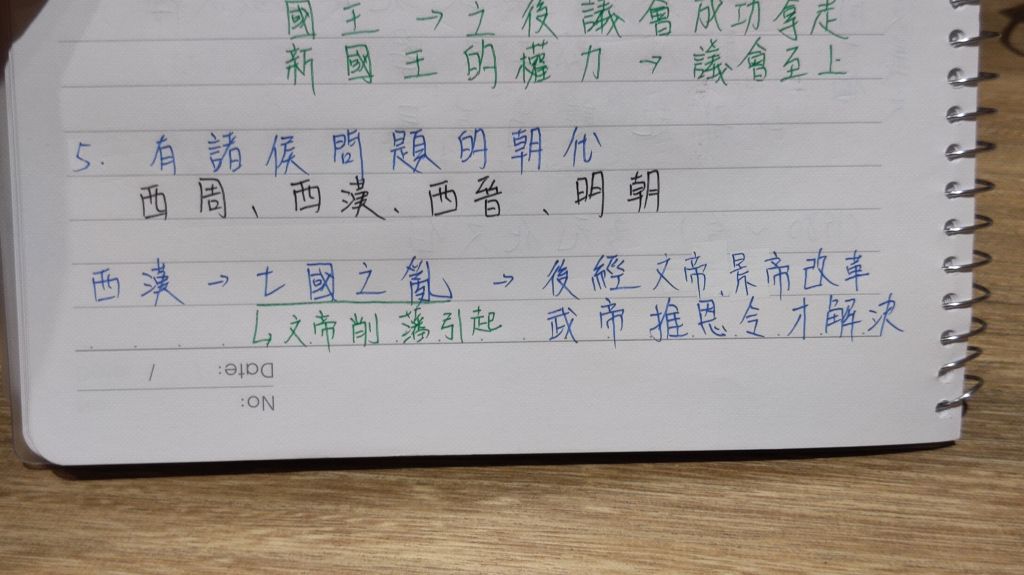 國王 → 之後議會成功拿走
新國王的權力 → 議會至上
5. 有諸侯問題的朝代
西周、西漢、西晉、明朝
西漢 → 七國之亂 → 後經文帝、景帝改革
↳文帝削藩引起 武帝推恩令才解決
Date: /
No: